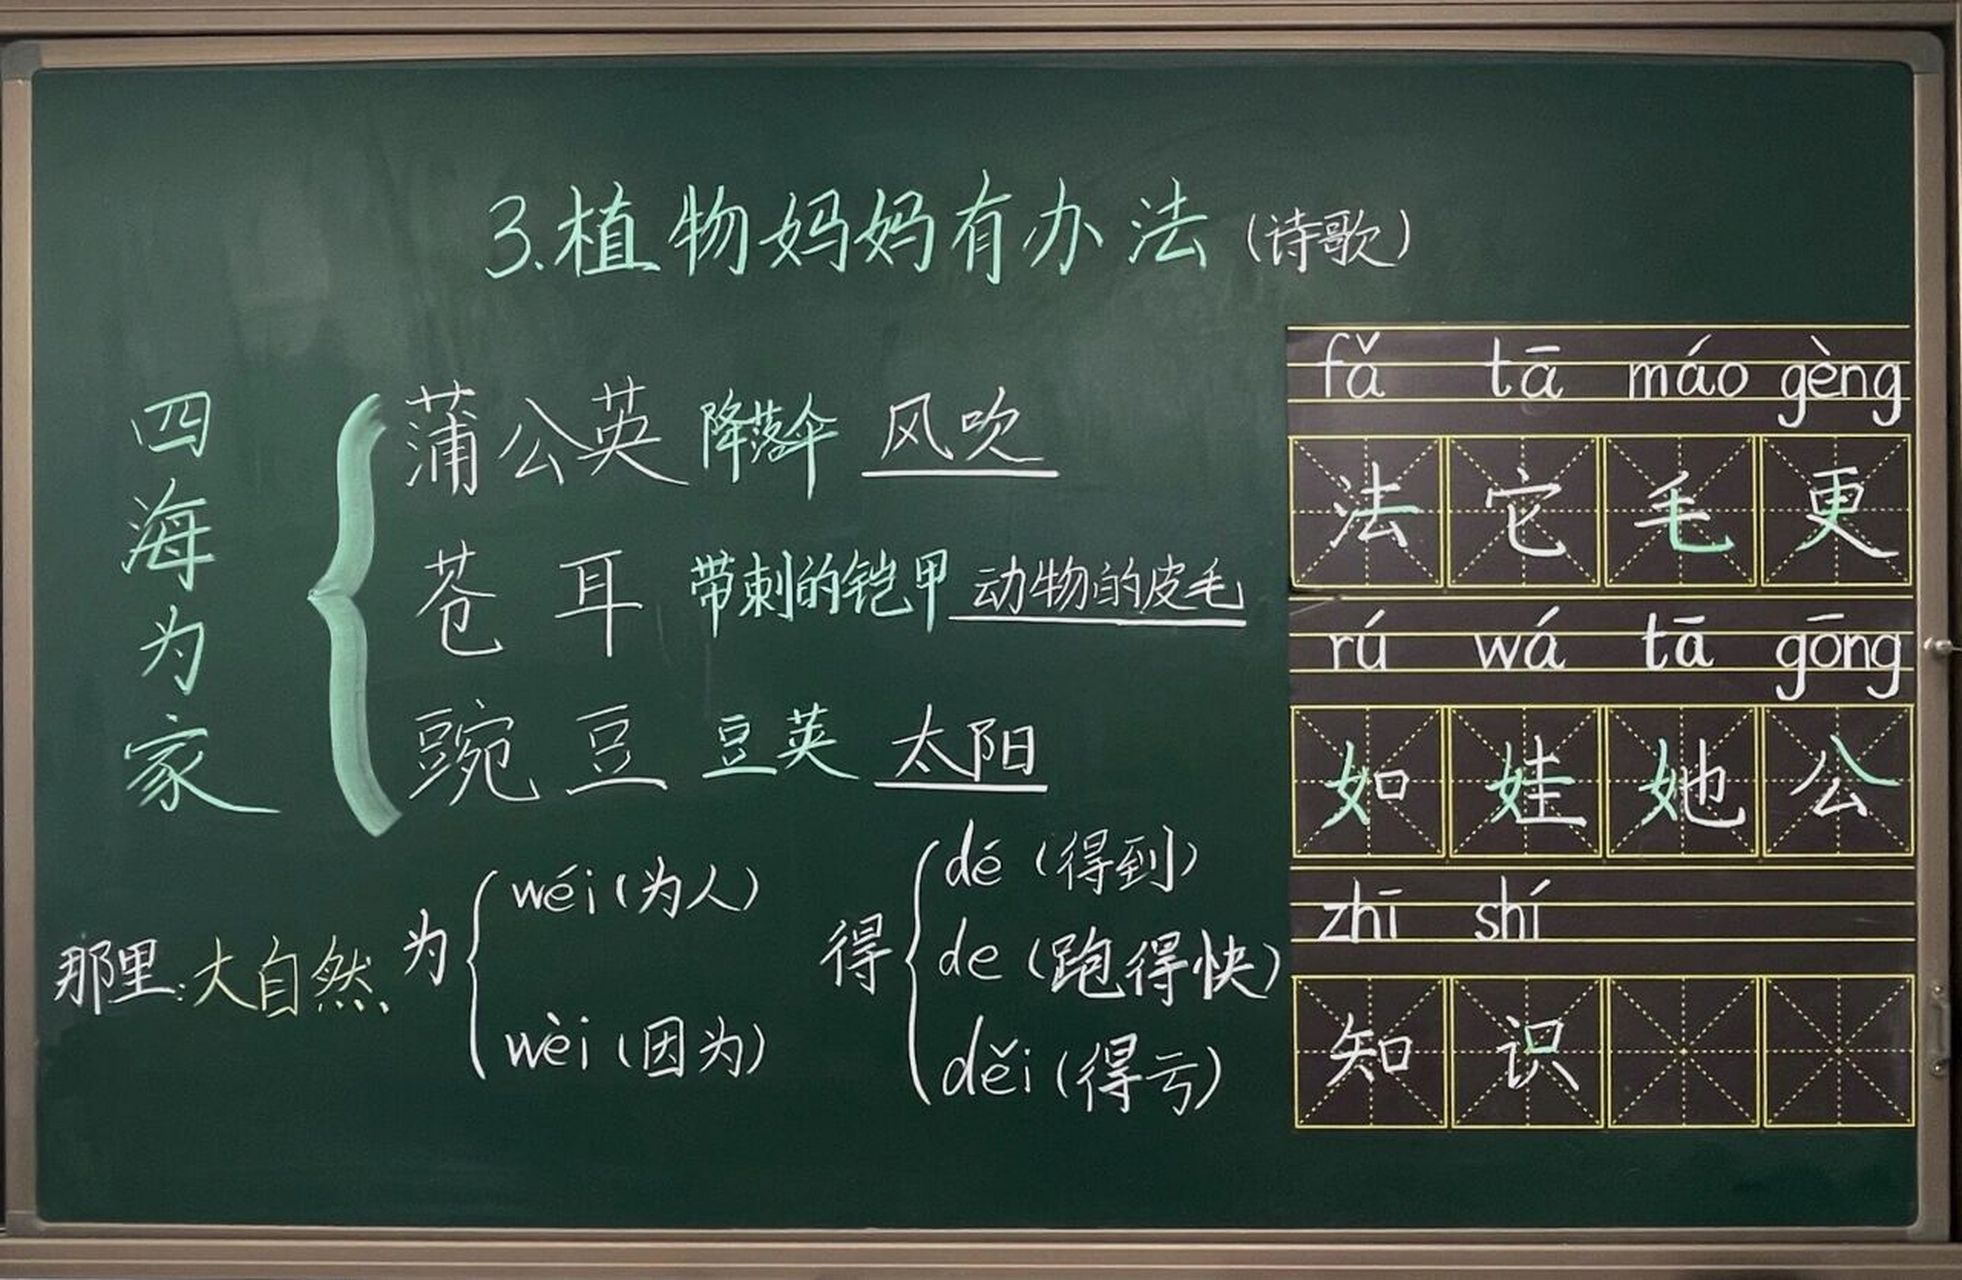 3.植物妈妈有办法(诗歌)
四海为家
蒲公英 降落伞 风吹
苍耳 带刺的铠甲 动物的皮毛
豌豆 豆荚 太阳
那里:大自然、
为
wéi(为人)
wèi(因为)
得
dé(得到)
de(跑得快)
děi(得亏)
fǎ tā máo gèng
法 它 毛 更
rú wá tā gōng
如 娃 她 公
zhī shí
知 识